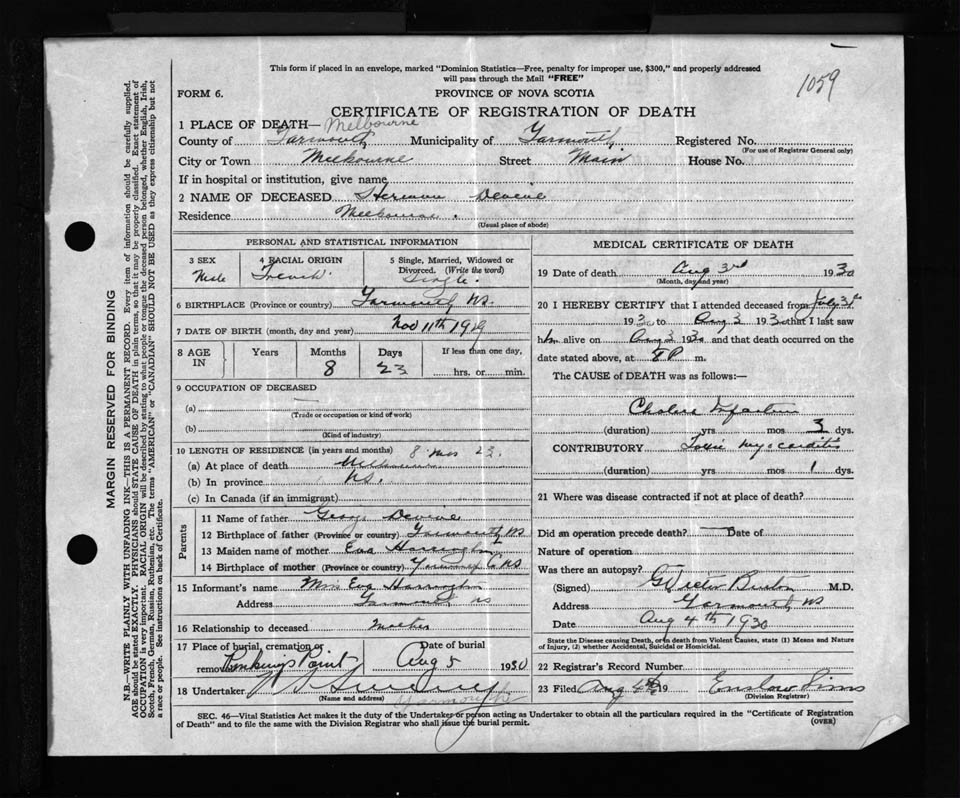 This form if placed in an envelope, marked "Dominion Statistics—Free, penalty for improper use, $300," and properly addressed
will pass through the Mail "FREE"
1059
FORM 6.
PROVINCE OF NOVA SCOTIA
CERTIFICATE OF REGISTRATION OF DEATH
1 PLACE OF DEATH— Melbourne
County of Yarmouth Municipality of Yarmouth Registered No.
(For use of Registrar General only)
City or Town Melbourne Street Main House No.
If in hospital or institution, give name
2 NAME OF DECEASED Devine
Residence Melbourne.
(Usual place of abode)
PERSONAL AND STATISTICAL INFORMATION
3 SEX 4 RACIAL ORIGIN 5 Single, Married, Widowed or
Divorced. (Write the word)
Male French Single.
6 BIRTHPLACE (Province or country) Yarmouth NS.
7 DATE OF BIRTH (month, day and year) Nov 11th 1929
8 AGE IN Years Months Days If less than one day,
8 23 hrs. or min.
9 OCCUPATION OF DECEASED
(a) —
(Trade or occupation or kind of work)
(b)
(Kind of industry)
10 LENGTH OF RESIDENCE (in years and months) 8 mos 23.
(a) At place of death Melbourne
(b) In province NS.
(c) In Canada (if an immigrant)
Parents
11 Name of father George Devine
12 Birthplace of father (Province or country) Yarmouth NS
13 Maiden name of mother Eva
14 Birthplace of mother (Province or country) NS
15 Informant's name Mrs Eva
Address Yarmouth NS
16 Relationship to deceased Mother
17 Place of burial, cremation or Date of burial
removal Point Aug 5 1930
18 Undertaker
(Name and address)
MEDICAL CERTIFICATE OF DEATH
19 Date of death Aug 3rd 1930
(Month, day and year)
20 I HEREBY CERTIFY that I attended deceased from July 31st
1930 to Aug 3 1930 that I last saw
him alive on Aug 3 1930 and that death occurred on the
date stated above, at 8 P m.
The CAUSE of DEATH was as follows:—
Cholera Infantum
(duration) yrs mos 3 dys.
CONTRIBUTORY Toxic myocarditis
(duration) yrs mos 1 dys.
21 Where was disease contracted if not at place of death?
Did an operation precede death? — Date of
Nature of operation
Was there an autopsy?
(Signed) G Victor Burton M.D.
Address Yarmouth NS
Date Aug 4th 1930
State the Disease causing Death, or in death from Violent Causes, state (1) Means and Nature
of Injury, (2) whether Accidental, Suicidal or Homicidal.
22 Registrar's Record Number
23 Filed Aug 4th 19 Enslow Sims
(Division Registrar)
SEC. 46—Vital Statistics Act makes it the duty of the Undertaker or person acting as Undertaker to obtain all the particulars required in the "Certificate of Registration
of Death" and to file the same with the Division Registrar who shall issue the burial permit.
(OVER)
MARGIN RESERVED FOR BINDING
N.B.—WRITE PLAINLY WITH UNFADING INK—THIS IS A PERMANENT RECORD. Every item of information should be carefully supplied.
AGE should be stated EXACTLY. PHYSICIANS should STATE CAUSE OF DEATH in plain terms, so that it may be properly classified. Exact statement of
OCCUPATION is very important. RACIAL ORIGIN will be described by stating to what people or tongue the deceased person belonged, whether English, Irish,
Scotch, French, German, Russian, Ruthenian, etc. The terms "AMERICAN" or "CANADIAN" SHOULD NOT BE USED as they express citizenship but not
a race or people. See instructions on back of Certificate.